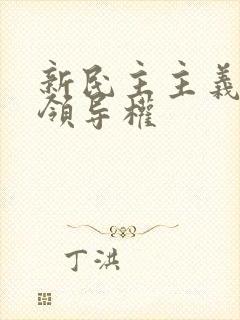 新民主主義
領导權
丁洪